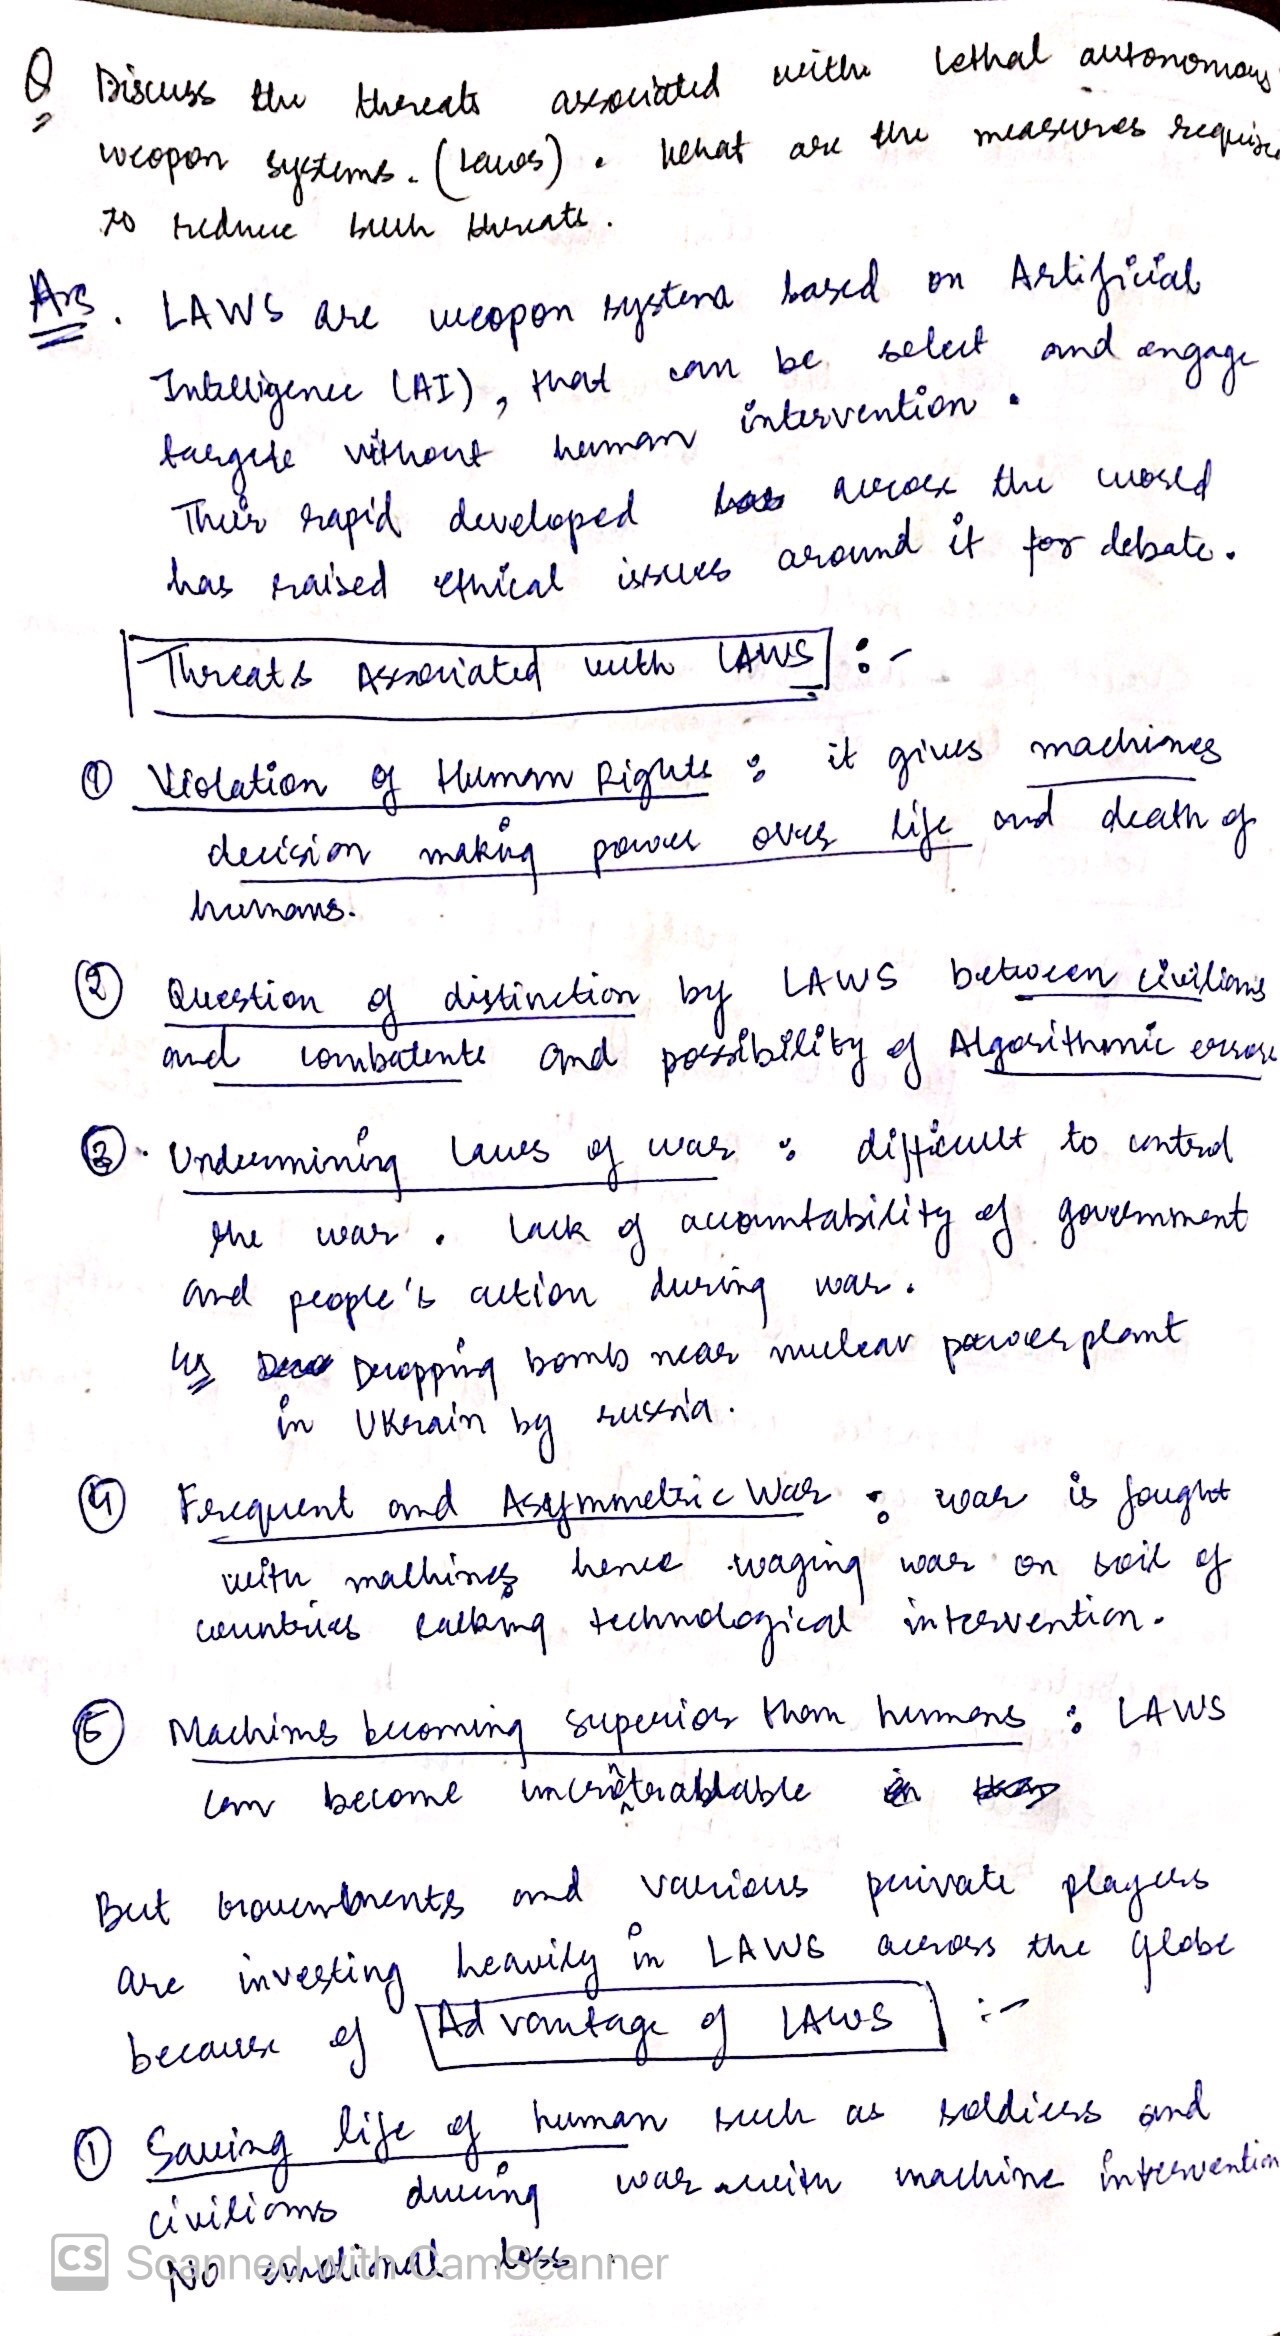 Q Discuss the threats associated with lethal autonomous
weopon systems. (Laws). What are the measures require
to reduce such threats.
Ans. LAWS are weopon system based on Artificial
Intelligence (AI), that can be select and engage
targets without human intervention.
Their rapid developed across the world
has raised ethical issues around it for debate.
Threats Associated with LAWS :-
① Violation of Human Rights : it gives machines
decision making power over life and death of
humans.
② Question of distinction by LAWS between civilians
and combatents and possibility of Algorithmic errors
③. Undermining laws of war : difficult to control
the war. Lack of accountability of government
and people's action during war.
Eg Dropping bomb near nuclear powerplant
in UKrain by russia.
④ Frequent and Asymmetric War : war is fought
with machines hence waging war on soil of
countries lacking technological intervention.
⑤ Machines becoming superior than humans : LAWS
can become
But Governments and various private players
are investing heavily in LAWS across the globe
because of Advantage of LAWS :-
① Saving life of human such as soldiers and
civilians during war with machine intervention
No emotional loss.
CS Scanned with CamScanner